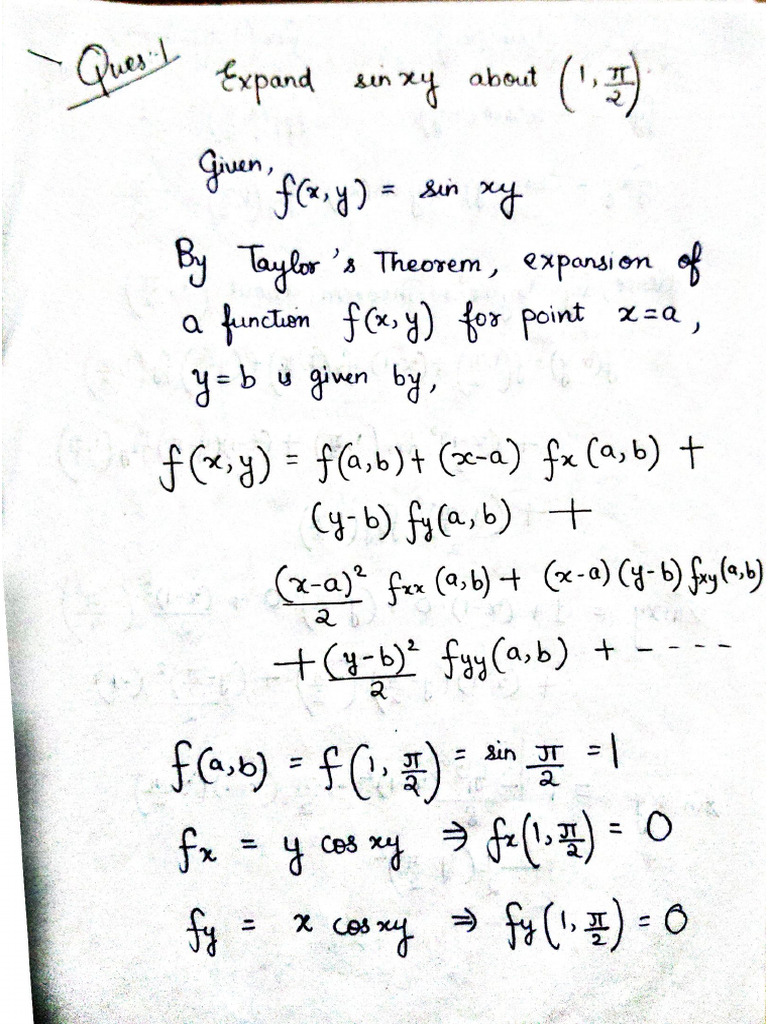 Ques:-1 Expand sin xy about (1, π/2).
Given,
f(x,y) = sin xy
By Taylor's Theorem, expansion of
a function f(x,y) for point x=a,
y=b is given by,
f(x,y) = f(a,b) + (x-a) fx (a,b) +
(y-b) fy(a,b) +
(x-a)²/2 fxx (a,b) + (x-a)(y-b) fxy(a,b)
+ (y-b)²/2 fyy(a,b) + - - - - -
f(a,b) = f(1, π/2) = sin π/2 = 1
fx = y cos xy ⇒ fx(1, π/2) = 0
fy = x cos xy ⇒ fy(1, π/2) = 0